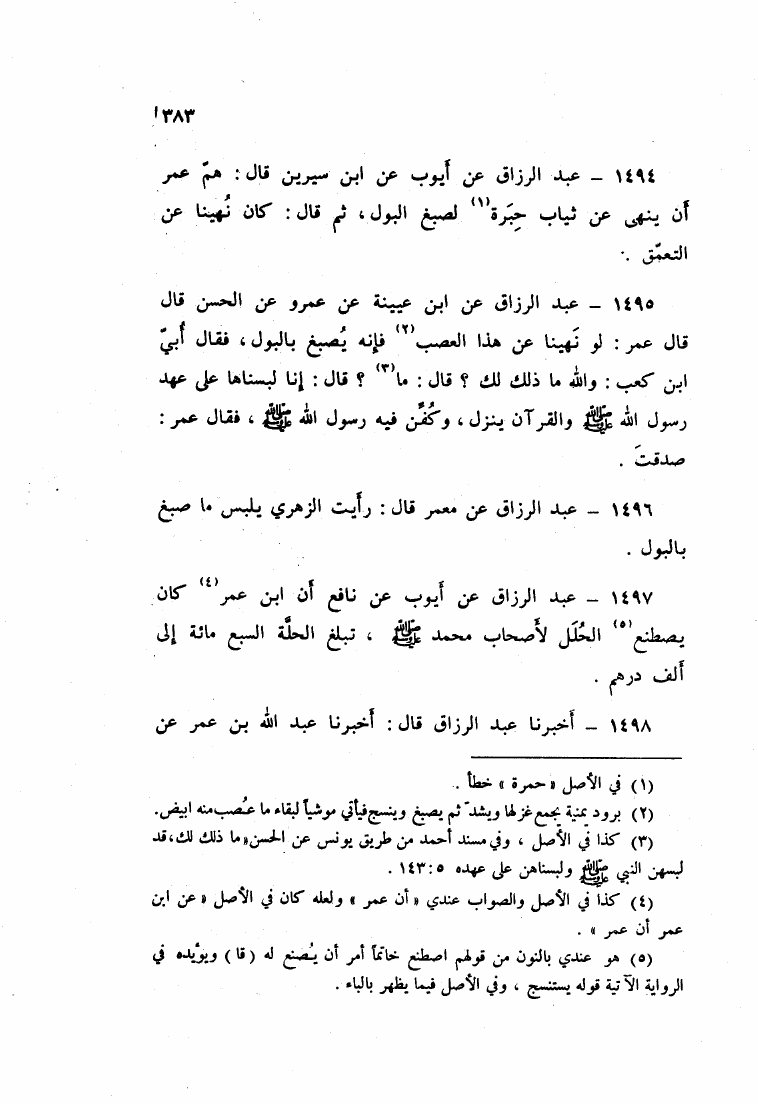 ٣٨٣
١٤٩٤ – عبد الرزاق عن أيوب عن ابن سيرين قال : همّ عمر
أن ينهى عن ثياب حِبَرة(١) لصبغ البول ، ثم قال : كان نُهينا عن
التعمّق .
١٤٩٥ – عبد الرزاق عن ابن عيينة عن عمرو عن الحسن قال
قال عمر : لو نَهينا عن هذا العصب(٢) فإنه يُصبغ بالبول ، فقال أُبيّ
ابن كعب : والله ما ذلك لك ؟ قال : ما(٣) ؟ قال : إنا لبسناها على عهد
رسول الله ﷺ والقرآن ينزل ، وكُفِّن فيه رسول الله ﷺ ، فقال عمر :
صدقتَ .
١٤٩٦ – عبد الرزاق عن معمر قال : رأيت الزهري يلبس ما صبغ
بالبول .
١٤٩٧ – عبد الرزاق عن أيوب عن نافع أن ابن عمر(٤) كان
يصطنع(٥) الحُلَل لأصحاب محمد ﷺ ، تبلغ الحلَّة السبع مائة إلى
ألف درهم .
١٤٩٨ – أخبرنا عبد الرزاق قال : أخبرنا عبد الله بن عمر عن
(١) في الأصل « حمرة » خطأ .
(٢) برود يمنية يجمع غزلها ويشدّ ثم يصبغ وينسج فيأتي موشياً لبقاء ما عُصب منه ابيض.
(٣) كذا في الأصل ، وفي مسند أحمد من طريق يونس عن الحسن «ما ذلك لك، قد
لبسهن النبي ﷺ ولبسناهن على عهده ٥ :١٤٣ .
(٤) كذا في الأصل والصواب عندي « أن عمر » ولعله كان في الأصل « عن ابن
عمر أن عمر » .
(٥) هو عندي بالنون من قولهم اصطنع خاتماً أمر أن يُصنع له (قا) ويؤيده في
الرواية الآتية قوله يستنسج ، وفي الأصل فيما يظهر بالباء .